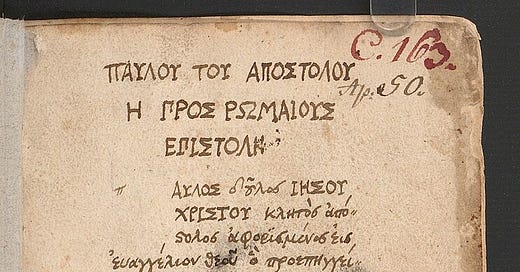 C. 163.
Ap. 50.
ΠΑΥΛΟΥ ΤΟΥ ΑΠΟΣΤΟΛΟΥ
Η ΠΡΟΣ ΡΩΜΑΙΟΥΣ
ΕΠΙΣΤΟΛΗ
π ΑΥΛΟΣ δοῦλος ΙΗΣΟΥ
ΧΡΙΣΤΟΥ κλητὸς ἀπό-
στολος ἀφορισμένος εἰς
ἐυαγγέλιον θεοῦ ὃ προεπηγγεί-